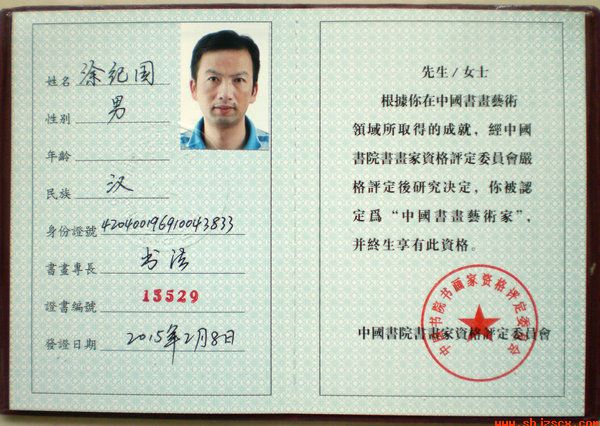 姓名 涂纪国
性别 男
年齡
民族 汉
身份證號 420400196910043833
書畫專長 书法
證書編號 15529
發證日期 2015年2月8日
先生/女士
根據你在中國書畫藝術
領域所取得的成就，經中國
書院書畫家資格評定委員會嚴
格評定後研究决定，你被認
定爲“中國書畫藝術家”，
并終生享有此資格。
中國書院書畫家資格評定委員會
中国书院书画家资格评定委员会
www.shjzscx.com